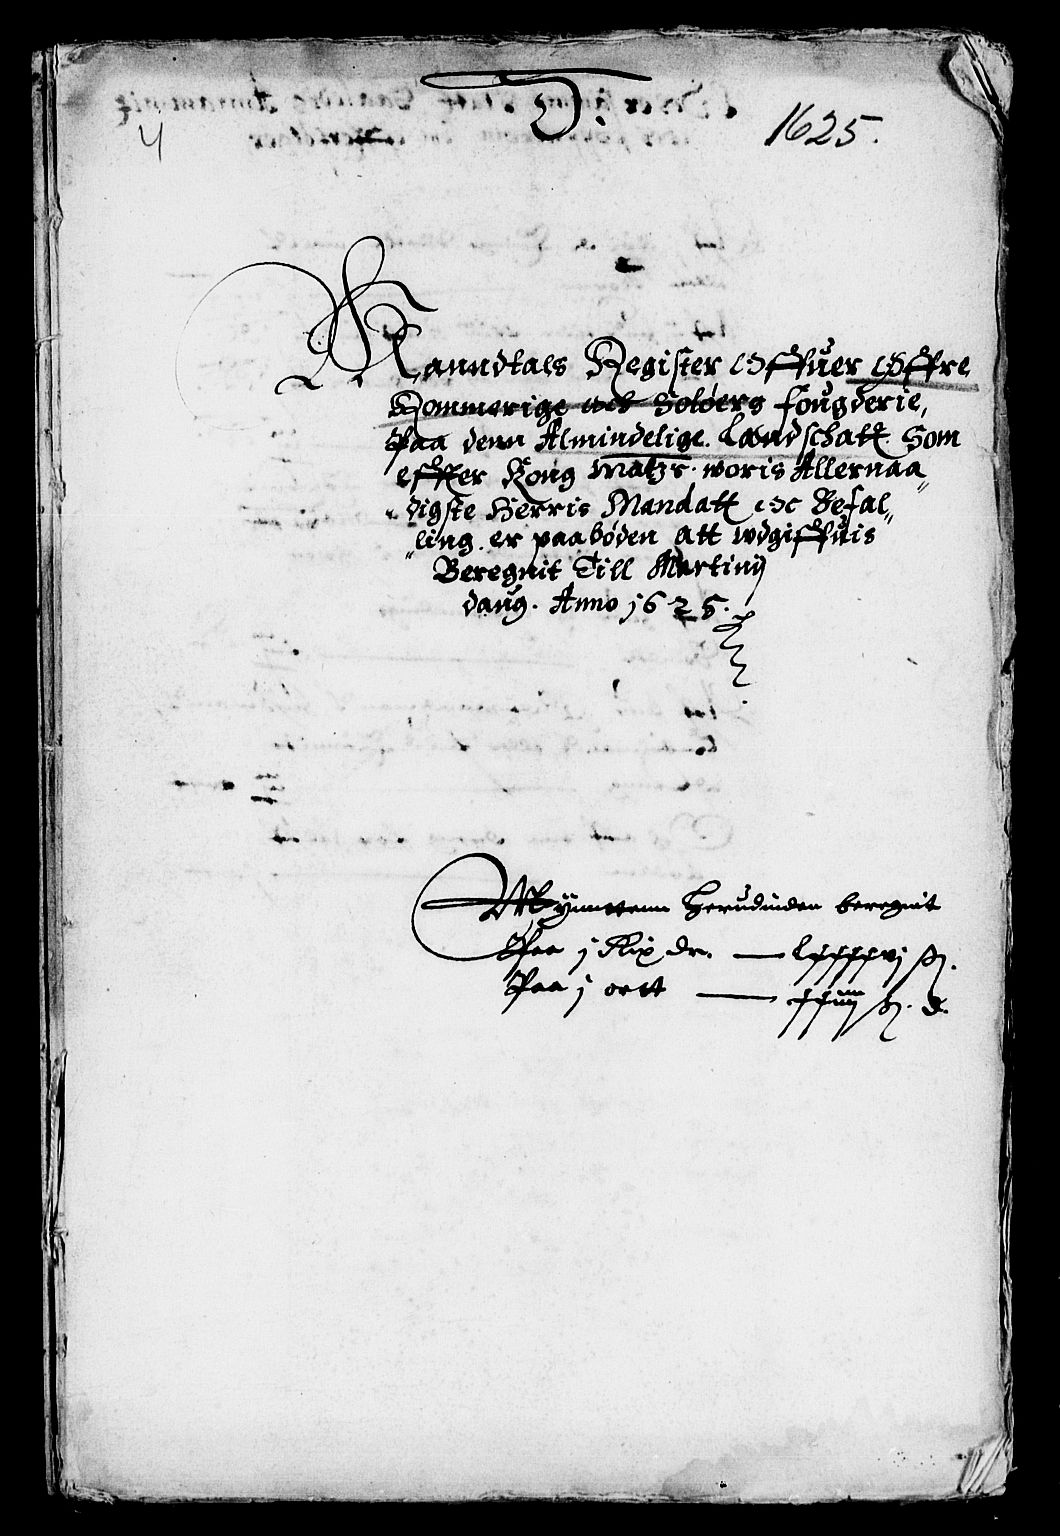 4
1625.
Manndtals Register Offuer Øffre
Rommerige och Soløers fougderie,
Paa denn Almindelige Landschatt. Som
effter Kong Matzs. woris Allernaa
digste Herris Mandatt oc Befal„
„ling er paabøden att wdgiffuis
Beregnit Till Martinij
daug. Anno 1625.
Mynntenn Herudinden beregnit
Paa j Rix dr. — lxxxxvj ß.
Paa j ortt — xxiiij ß. d.